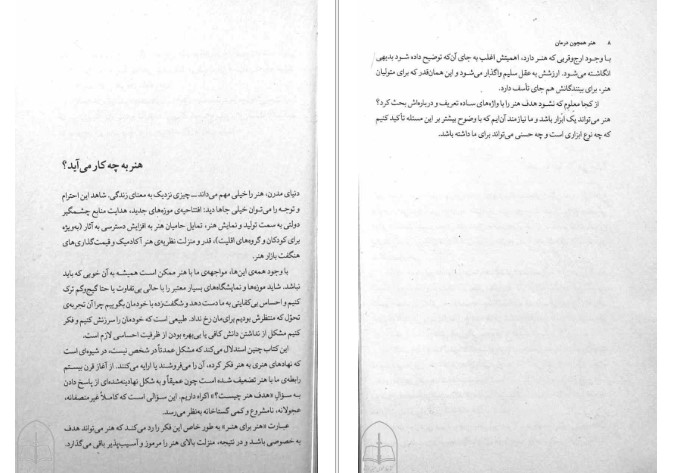 هنر به چه کار می‌آید؟
دنیای مدرن، هنر را خیلی مهم می‌داند ـــ چیزی نزدیک به معنای زندگی. شاهد این احترام
و توجه را می‌توان خیلی جاها دید: افتتاحیه‌ی موزه‌های جدید، هدایت منابع چشمگیر
دولتی به سمت تولید و نمایش هنر، تمایل حامیان هنر به افزایش دسترسی به آثار (به‌ویژه
برای کودکان و گروه‌های اقلیت)، قدر و منزلت نظریه‌ی هنر آکادمیک و قیمت‌گذاری‌های
هنگفت بازار هنر.
با وجود همه‌ی این‌ها، مواجهه‌ی ما با هنر ممکن است همیشه به آن خوبی که باید
نباشد. شاید موزه‌ها و نمایشگاه‌های بسیار معتبر را با حالی بی‌تفاوت یا حتا گیج‌وگم ترک
کنیم و احساس بی‌کفایتی به ما دست دهد و شگفت‌زده با خودمان بگوییم چرا آن تجربه‌ی
تحوّل که منتظرش بودیم برای‌مان رخ نداد. طبیعی است که خودمان را سرزنش کنیم و فکر
کنیم مشکل از نداشتن دانش کافی یا بی‌بهره بودن از ظرفیت احساسی لازم است.
این کتاب چنین استدلال می‌کند که مشکل عمدتاً در شخص نیست، در شیوه‌ای است
که نهادهای هنری به هنر فکر کرده، آن را می‌فروشند یا ارایه می‌کنند. از آغاز قرن بیستم
رابطه‌ی ما با هنر تضعیف شده است چون عمیقاً و به شکل نهادینه‌شده‌ای از پاسخ دادن
به سؤالِ «هدف هنر چیست؟» اکراه داریم. این سؤالی است که کاملاً غیرمنصفانه،
عجولانه، نامشروع و کمی گستاخانه به‌نظر می‌رسد.
عبارت «هنر برای هنر» به طور خاص این فکر را رد می‌کند که هنر می‌تواند هدف
به خصوصی باشد و در نتیجه، منزلت بالای هنر را مرموز و آسیب‌پذیر باقی می‌گذارد.
۸ هنر همچون درمان
با وجود ارج‌وقربی که هنر دارد، اهمیتش اغلب به جای آن‌که توضیح داده شود بدیهی
انگاشته می‌شود. ارزشش به عقل سلیم واگذار می‌شود و این همان‌قدر که برای متولیان
هنر، برای بینندگانش هم جای تأسف دارد.
از کجا معلوم که نشود هدف هنر را با واژه‌های ساده تعریف و درباره‌اش بحث کرد؟
هنر می‌تواند یک ابزار باشد و ما نیازمند آن‌ایم که با وضوح بیشتر بر این مسئله تأکید کنیم
که چه نوع ابزاری است و چه حسنی می‌تواند برای ما داشته باشد.